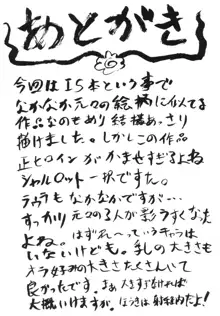 あとがき
今回はIS本という事で
なかなか元々の絵柄に似てる
作品なのもあり 結構あっさり
描けました。しかしこの作品
正ヒロインがかませすぎるよね
シャルロット一択ですた。
ラウラもなかなかですが…
すっかり元々の3人が影うすくなった
よね。はずれ〜っていうキャラは
いないけども。乳の大きさも
オラ好みの大きさたくさんいて
良かったです。まぁ大きすぎなければ
大概いけますが。ほうきは射程内だよ!